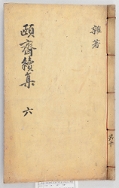 雜著
頤齋續集 六